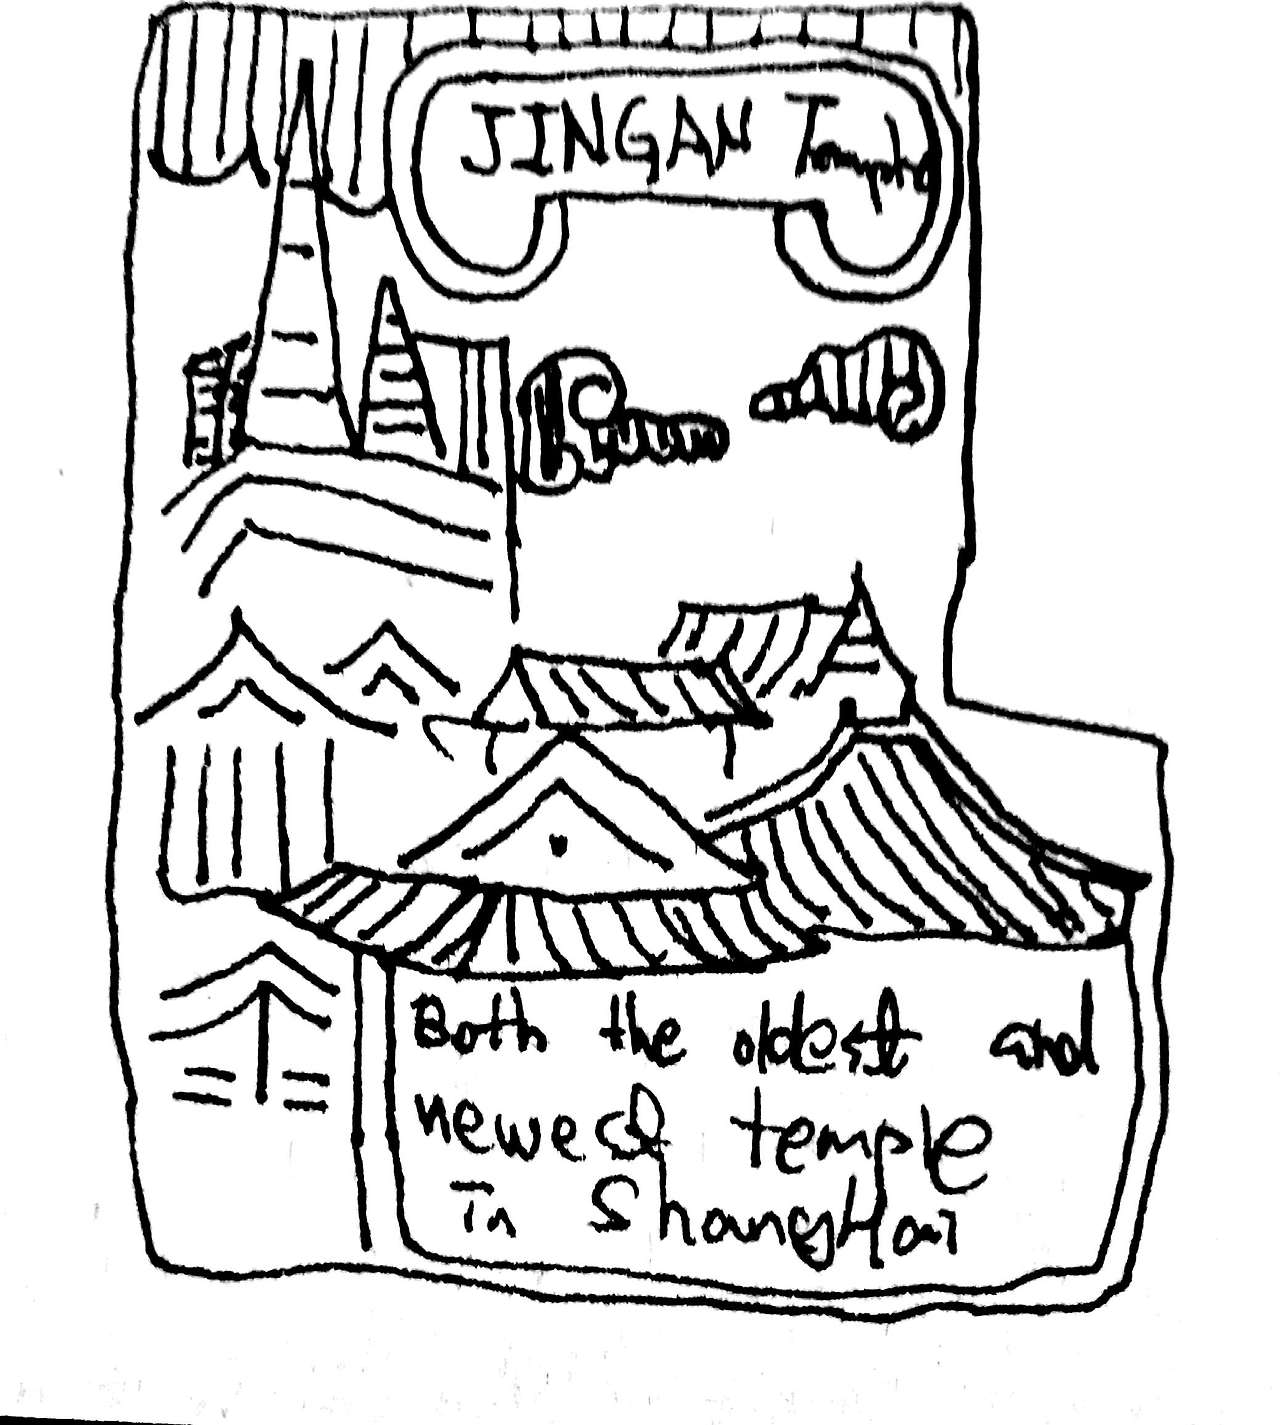 JINGAN Temple
Both the oldest and
newest temple
In ShangHai